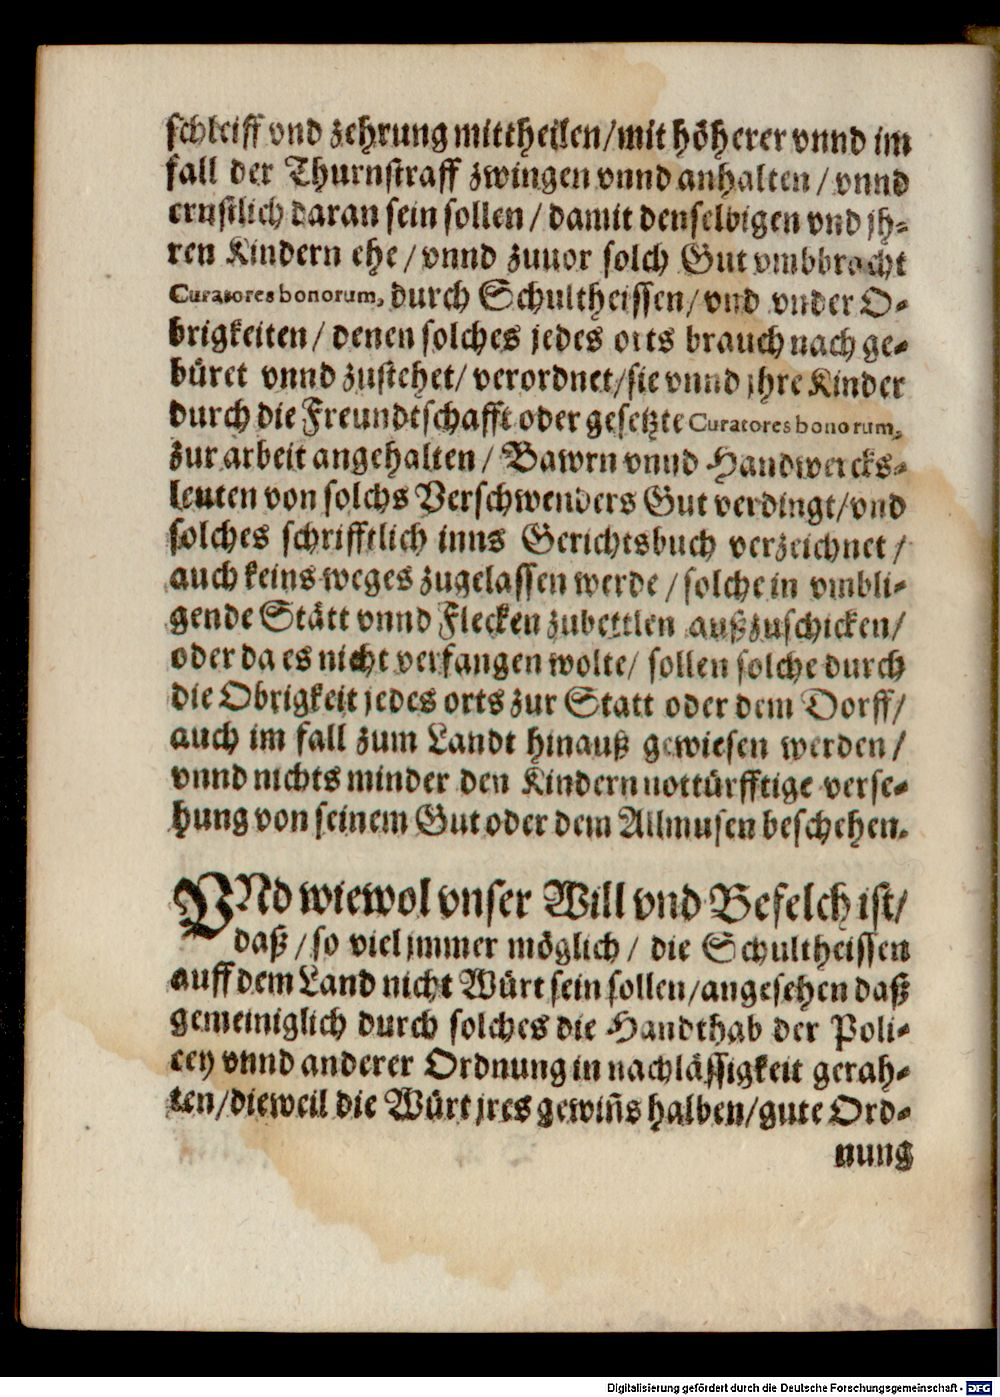 schleiff vnd zehrung mittheilen/mit höherer vnnd im
fall der Thurnstraff zwingen vnnd anhalten / vnnd
ernstlich daran sein sollen / damit denselbigen vnd jh-
ren Kindern ehe / vnnd zuuor solch Gut vmbbracht
Curatores bonorum, durch Schultheissen/ vnd vnder O-
brigkeiten / denen solches jedes orts brauch nach ge-
büret vnnd zustehet/ verordnet/sie vnnd jhre Kinder
durch die Freundtschafft oder gesetzte Curatores bonorum,
zur arbeit angehalten / Bawrn vnnd Handwercks-
leuten von solchs Verschwenders Gut verdingt/vnd
solches schrifftlich inns Gerichtsbuch verzeichnet /
auch keins weges zugelassen werde / solche in vmbli-
gende Stätt vnnd Flecken zubettlen außzuschicken/
oder da es nicht verfangen wolte/ sollen solche durch
die Obrigkeit jedes orts zur Statt oder dem Dorff/
auch im fall zum Landt hinauß gewiesen werden/
vnnd nichts minder den Kindern notturfftige verse-
hung von seinem Gut oder dem Allmusen beschehen.
VNd wiewol vnser Will vnd Befelch ist/
daß / so viel jmmer möglich / die Schultheissen
auff dem Land nicht Würt sein sollen/angesehen daß
gemeiniglich durch solches die Handthab der Poli-
cey vnnd anderer Ordnung in nachlässigkeit gerah-
ten/dieweil die Würt jres gewiñs halben/gute Ord-
nung
Digitalisierung gefördert durch die Deutsche Forschungsgemeinschaft - DFG